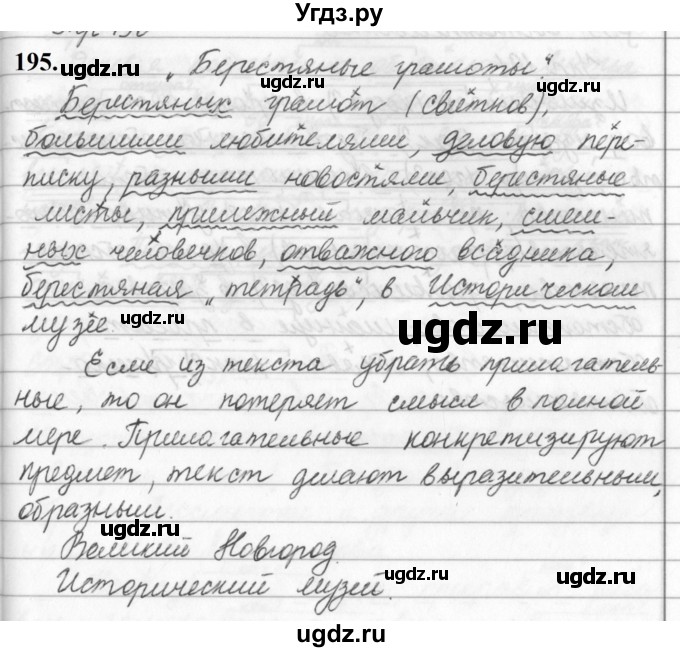 Угдз.ру
195. „Берестяные грамоты".
Берестяных грамот (свитков),
большими любителями, деловую пере-
писку, разными новостями, берестяные
листы, прилежный мальчик, смеш-
ных человечков, отважного всадника,
берестяная „тетрадь", в Историческом
музее.
ugdz.ru ugdz.ru
ugdz.ru
Если из текста убрать прилагатель-
ные, то он потеряет смысл в полной
мере. Прилагательные конкретизируют
ugdz.ru
предмет, текст делают выразительным,
образным.
ugdz.ru
Великий Новгород.
Исторический музей.
ugdz.ru ugdz.ru
ugdz.ru